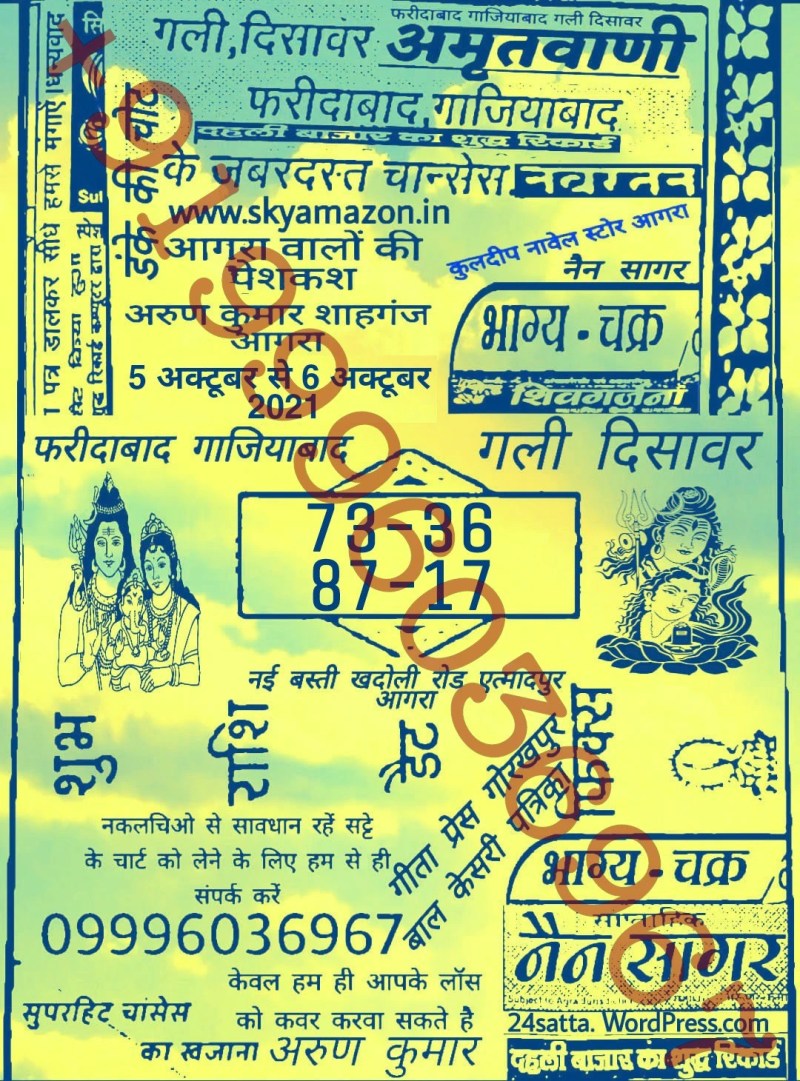 फरीदाबाद गाजियाबाद गली दिसावर
गली,दिसावर अमृतवाणी
फरीदाबाद,गाजियाबाद
दहली बाजार का शुद्ध रिकार्ड
के जबरदस्त चान्सेस
डंके की चोट
1 पत्र डालकर सीधे हमसे मंगाएं धन्यवाद
www.skyamazon.in
आगरा वालों की
पेशकश
कुलदीप नावेल स्टोर आगरा
नैन सागर
अरुण कुमार शाहगंज
आगरा
भाग्य - चक्र
शिवगर्जना
5 अक्टूबर से 6 अक्टूबर
2021
फरीदाबाद गाजियाबाद
गली दिसावर
73-36
87-17
नई बस्ती खदोली रोड एत्मादपुर
आगरा
शुभ
राशि
डेट
फिक्स
गीता प्रेस गोरखपुर
बाल केसरी पत्रिका
नकलचिओ से सावधान रहें सट्टे
के चार्ट को लेने के लिए हम से ही
संपर्क करें
09996036967
भाग्य - चक्र
साप्ताहिक
नैन सागर
केवल हम ही आपके लॉस
को कवर करवा सकते है
सुपरहिट चांसेस
का खजाना अरुण कुमार
24satta. WordPress.com
दहली बाजार का शुद्ध रिकार्ड